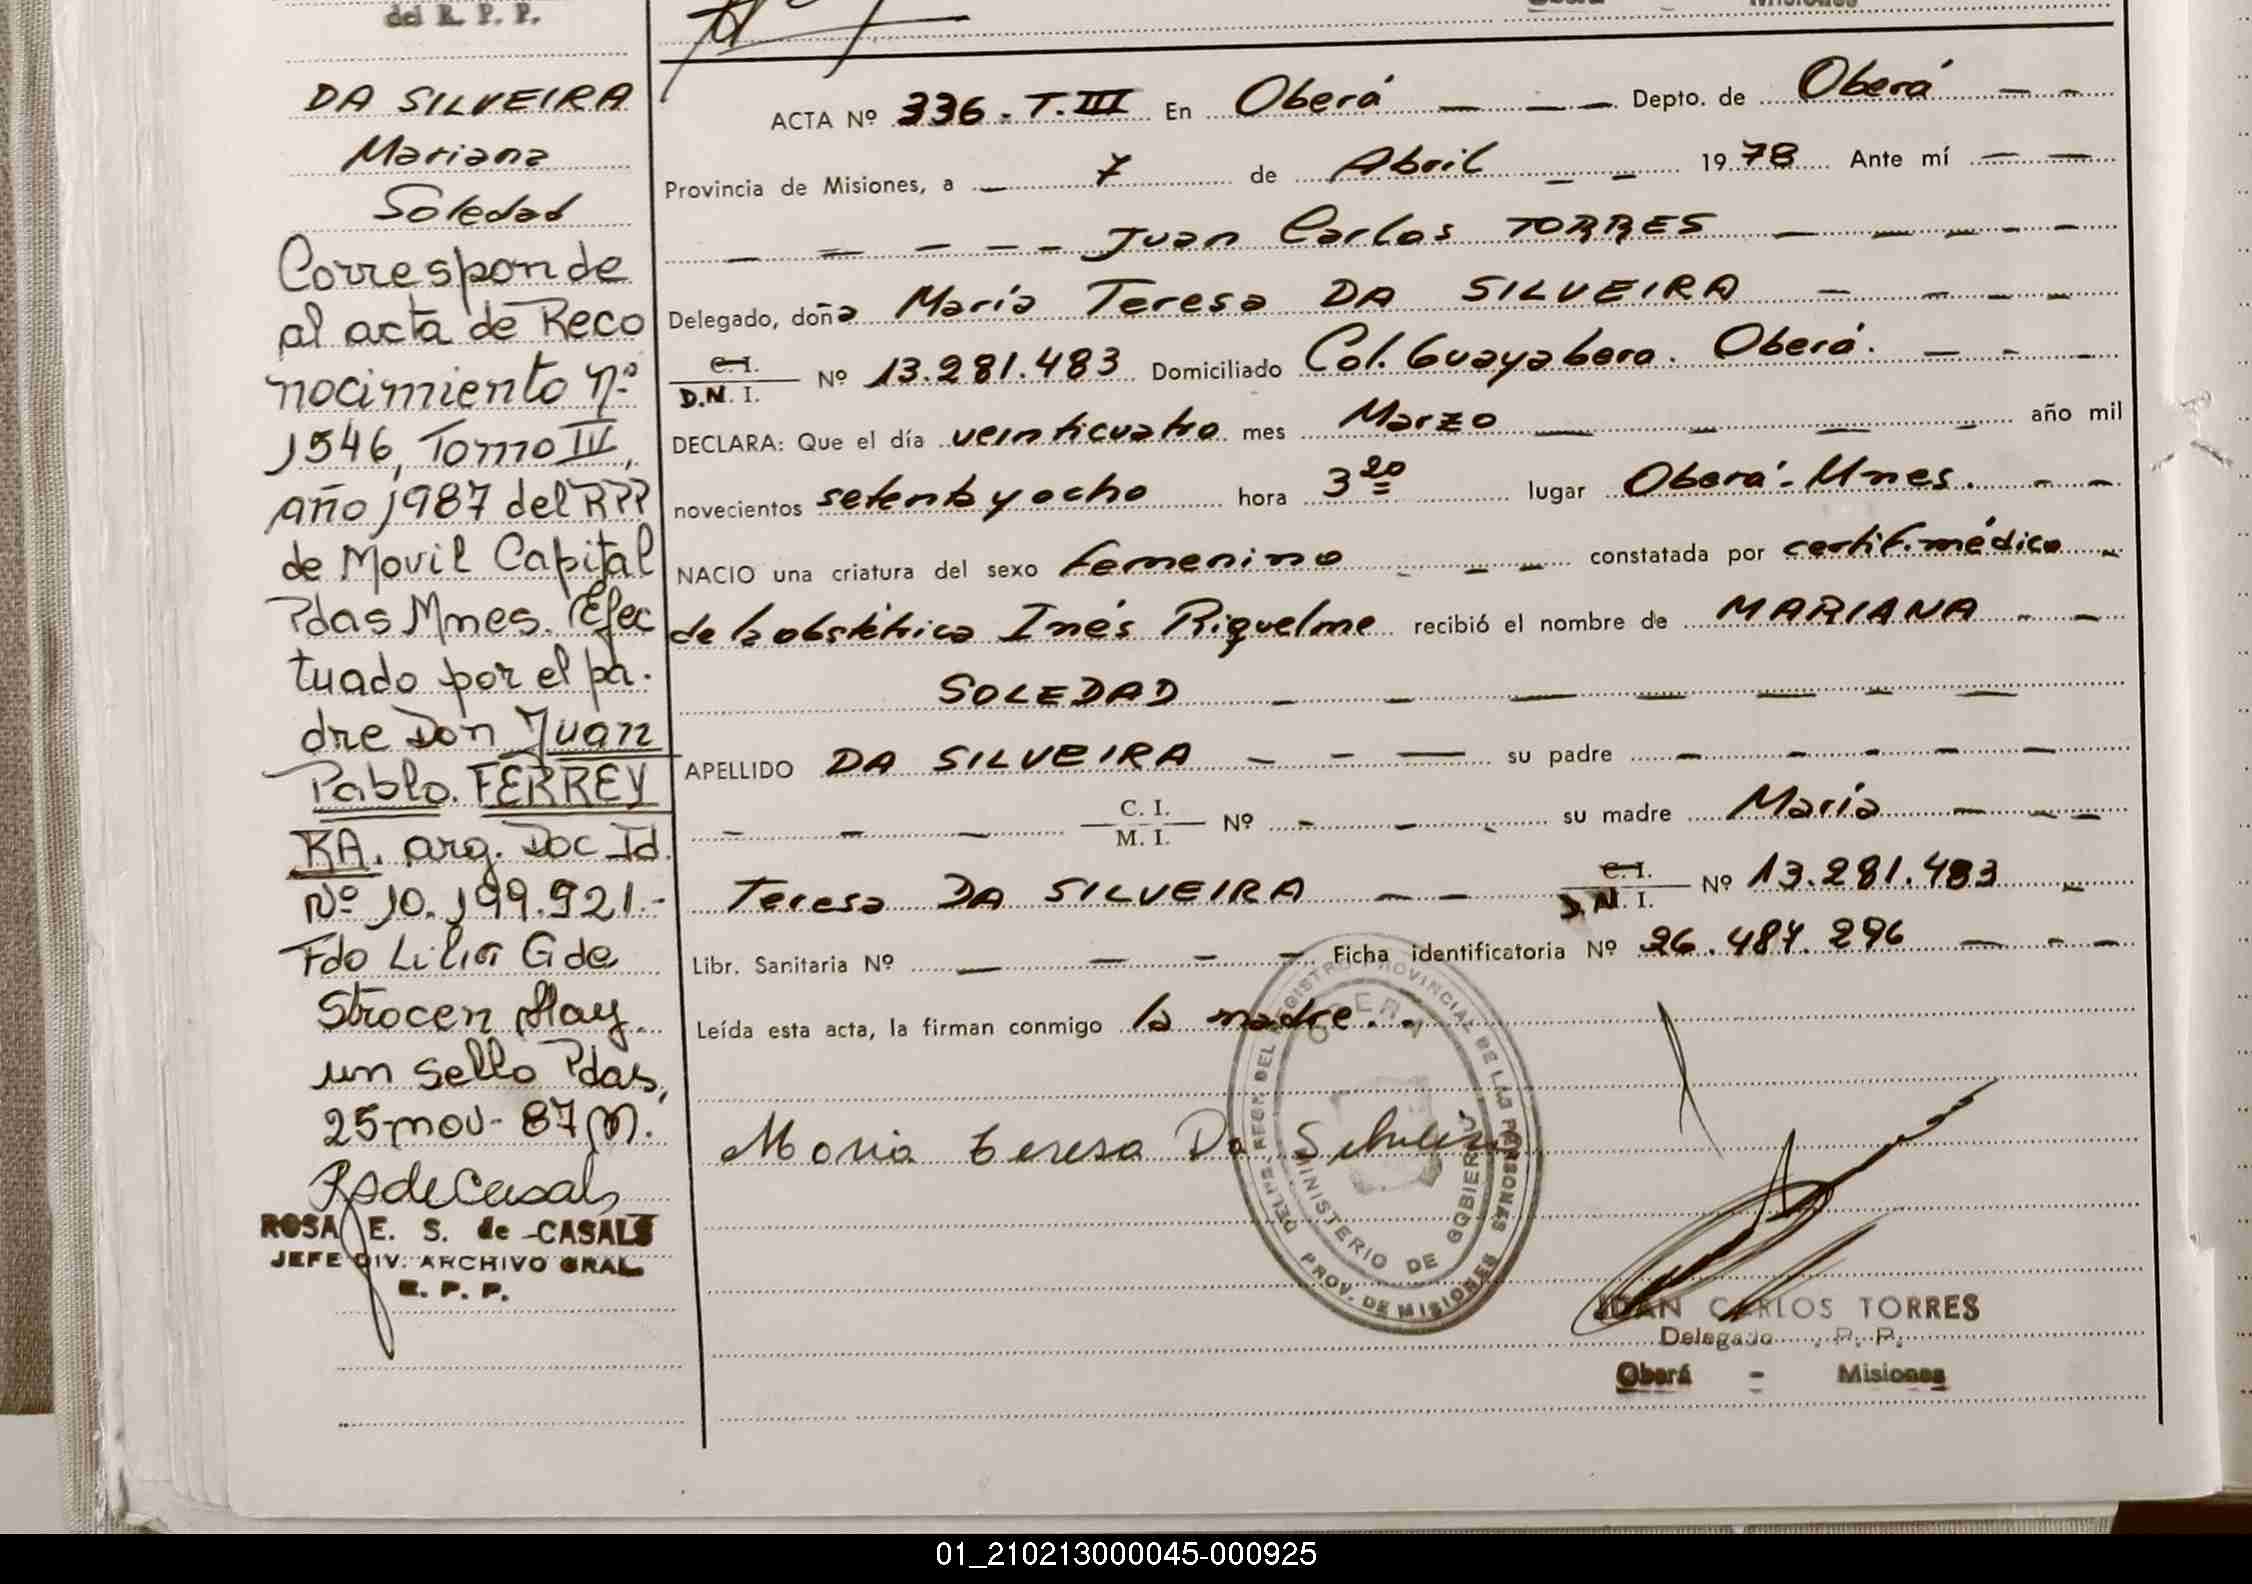 del R. P. P.
DA SILVEIRA
Mariana
Soledad
Corresponde
al acta de Reco
nocimiento Nº
1546, Tomo IV,
año 1987 del RPP
de Movil Capital
Pdas Mnes. Efec
tuado por el pa.
dre Don Juan
Pablo. FERREY
RA. arg. Doc Id.
Nº 10.199.921.-
Fdo Lilia G de
Strocen Hay
un sello Pdas,
25-nov-87 M.
ROSA E. S. de CASALS
JEFE DIV. ARCHIVO GRAL.
R. P. P.
ACTA Nº 336 - T. III En Oberá — — — Depto. de Oberá — -
Provincia de Misiones, a — 7 de Abril — — 1978 Ante mí — —
— — — - - Juan Carlos TORRES — — — - -
Delegado, doña María Teresa DA SILVEIRA — - — -
C. I.
D.N. I. Nº 13.281.483 Domiciliado Col. Guayabera. Oberá. — - -
DECLARA: Que el día veinticuatro mes Marzo — — — - año mil
novecientos setenta y ocho hora 3 20 lugar Oberá - Mnes. - -
NACIO una criatura del sexo femenino - - — constatada por certif. médico -
de la obstétrica Inés Riquelme recibió el nombre de MARIANA - -
SOLEDAD — - — — — - —
APELLIDO DA SILVEIRA - - — su padre - - - - —
- - — C. I.
M. I. Nº - - - su madre María — - -
Teresa DA SILVEIRA — - C. I.
D.N. I. Nº 13.281.483 -
Libr. Sanitaria Nº — — - - Ficha identificatoria Nº 26.487.296 — - -
Leída esta acta, la firman conmigo la madre. -
Maria teresa Da Silveira
DEL REGISTRO PROVINCIAL DE LAS PERSONAS
OBERA
MINISTERIO DE GOBIERNO
PROV. DE MISIONES
JUAN CARLOS TORRES
Delegado R. P. P.
Oberá - Misiones
01_210213000045-000925